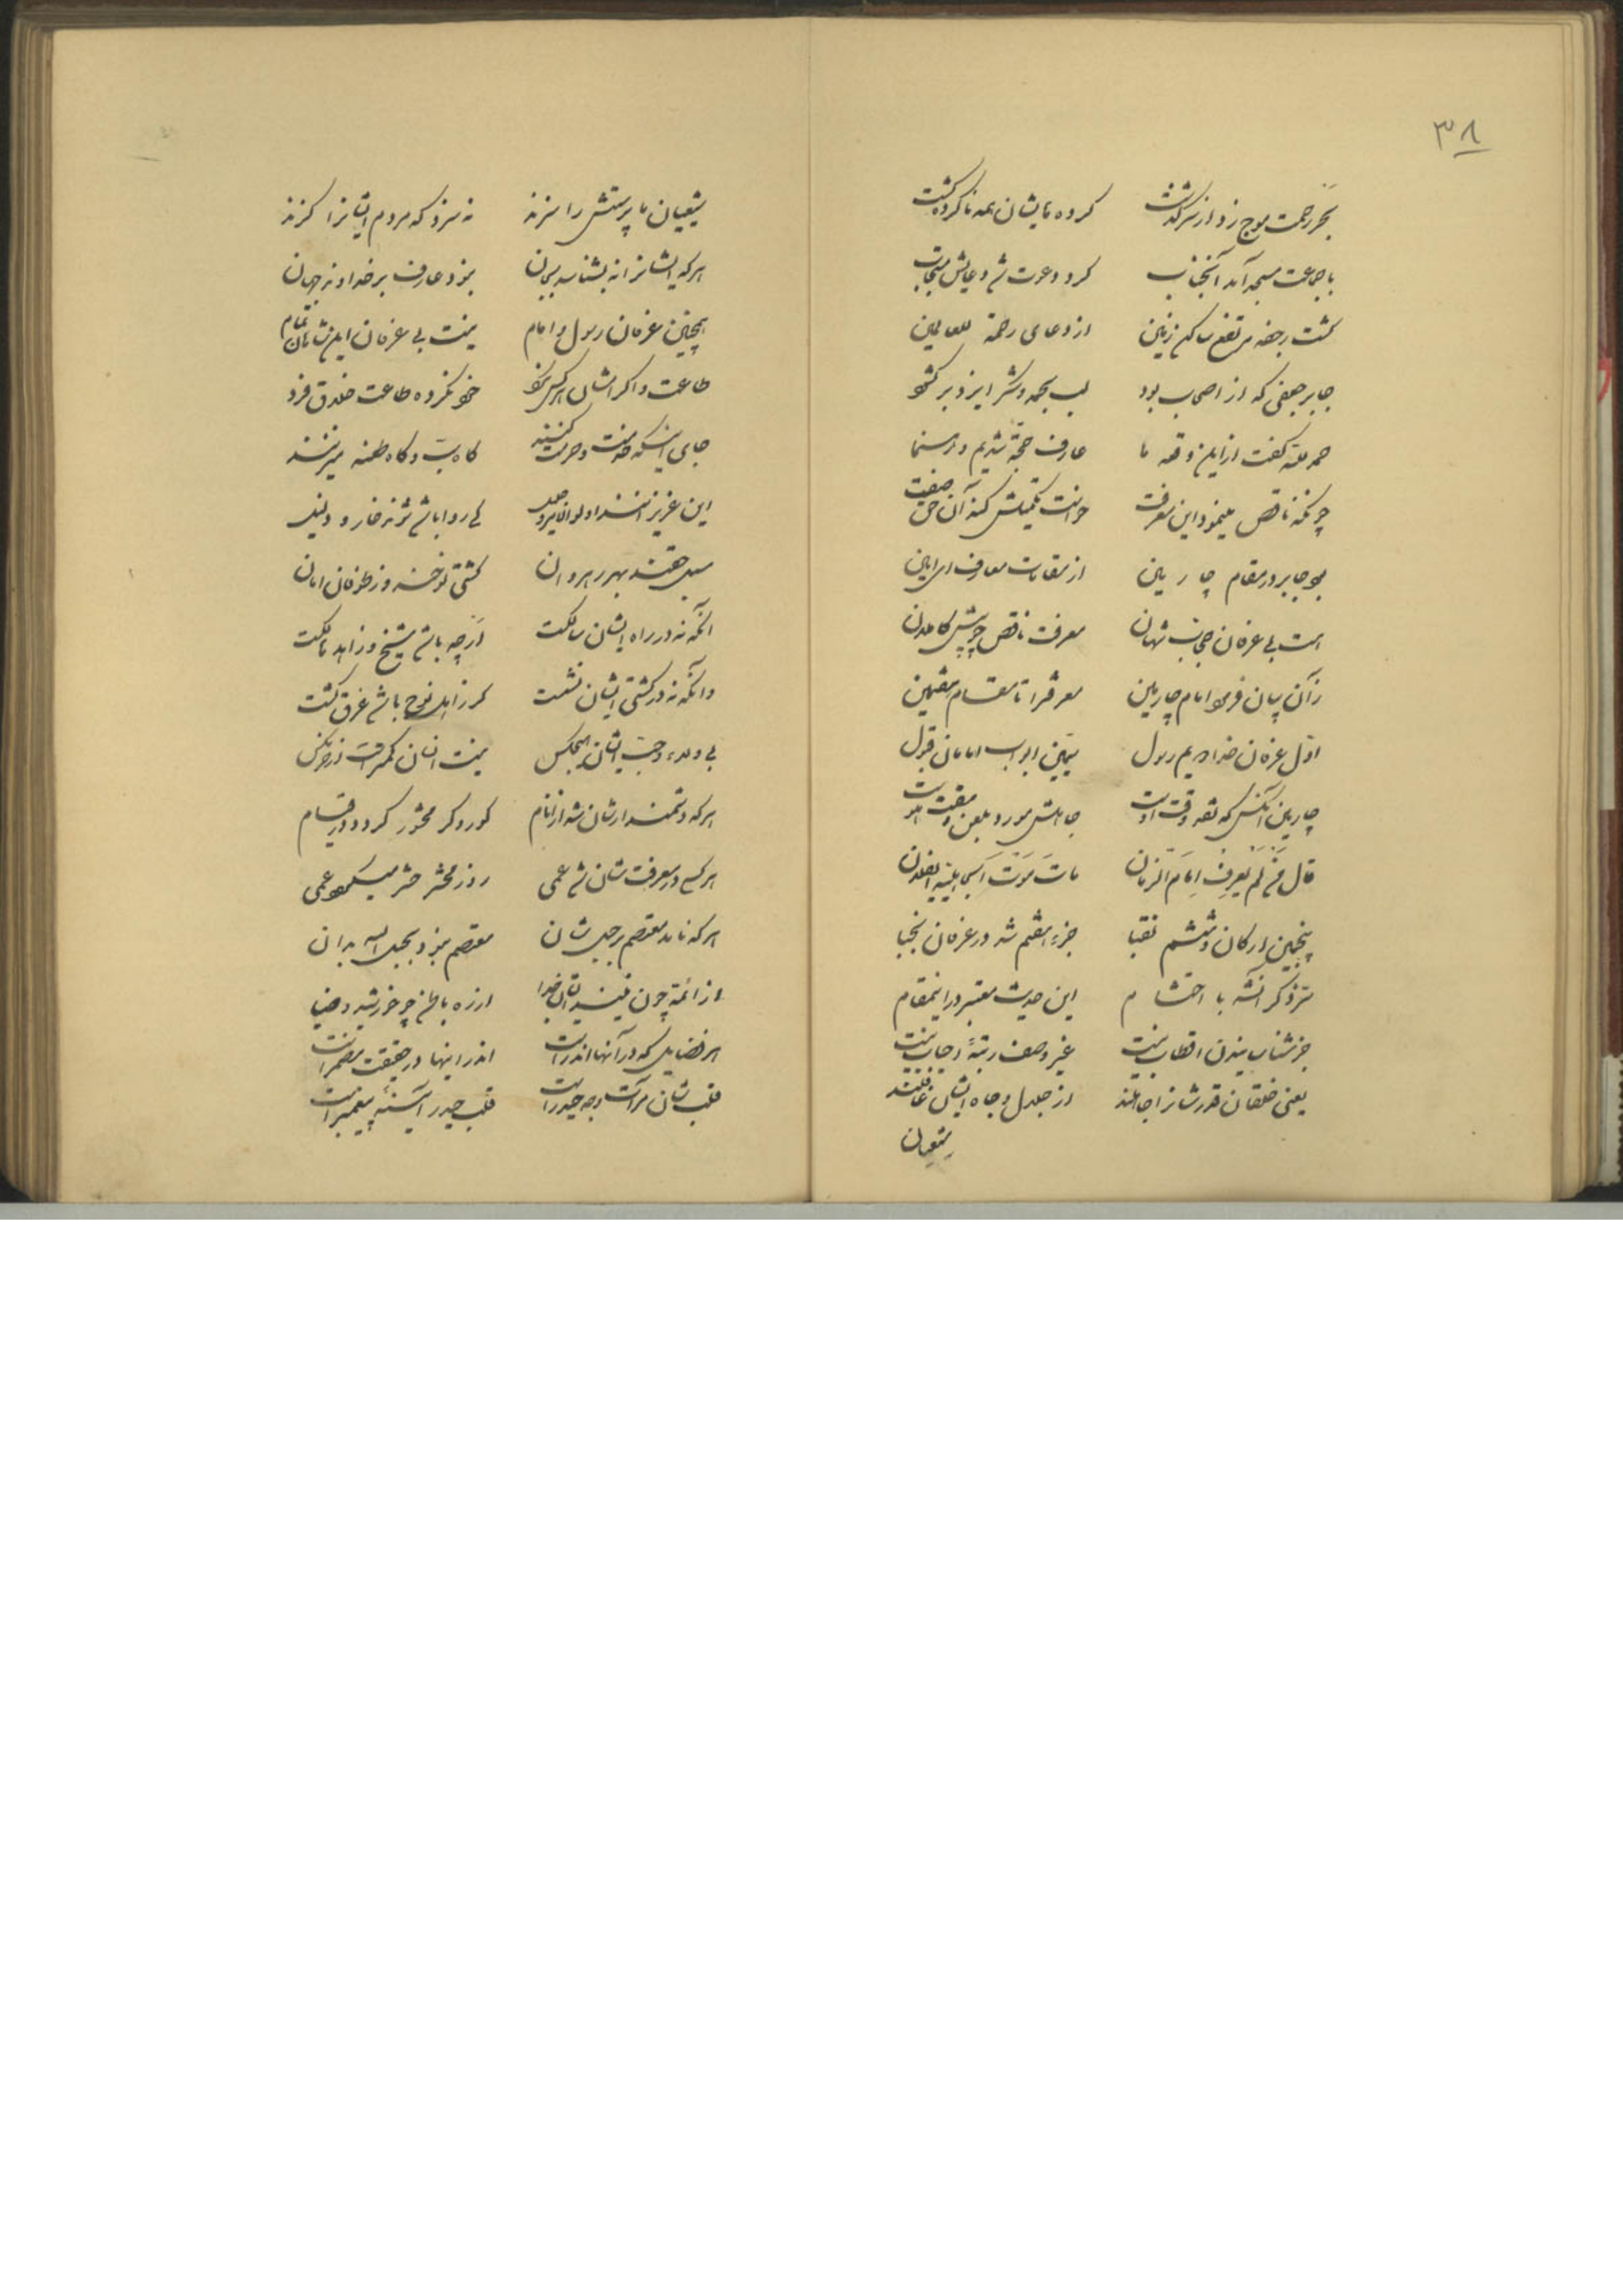 ۳۸
بحر رحمت موج زد از سر گذشت کرده‌هایشان همه ناکرده گشت
با جماعت مسجد آمد آنجناب کرد دعوت شد دعایش مستجاب
گشت رجفه مرتفع ساکن زمین از دعای رحمة للعالمین
جابر جعفی که از اصحاب بود لب بحمد و شکر ایزد بر گشود
حمد لله گفت ازین وقعه ما عارف حجة شدیم و رهنما
چونکه ناقص مینمود این معرفت خواست تکمیلش کند آن حق صفت
بود جابر در مقام چارمین از مقامات معارف ای امین
است بی عرفان نجیب شهان معرفت ناقص چو پیش کاملان
زآن بیان فرمود امام چارمین معرفترا تا مقام هفتمین
اول عرفان خدا دویم رسول سیمین ابواب امامان قبول
چارمین آنکس که نقد وقت اوست جاهلش مورد بلعن و مقت هوست
قال من لم یعرف امام الزمان مات موت اهل
پنجمین ارکان و ششم نقبا جزء هفتم شد در عرفان نجبا
شد ذکر با احتشام این حدیث معتبر در اینمقام
جز شناسائیدن اقطاب نیست غیر وصف رتبهٔ انجاب نیست
یعنی خلقان قدرشانرا جاهلند از جلال و جاه ایشان غافلند
شیعیان
شیعیان ما پرستش را سزند نه سزد که مردم ایشانرا گزند
هر که ایشانرا نه بشناسد بجان نبود عارف بر خداوند جهان
همچنین عرفان رسول و امام نیست بی عرفان این شاهان تمام
طاعت و اکرامشان هر کس نکرد خود نکرده طاعت خلاق فرد
جای اینکه خدمت و حرمت کنند گاه سب و گاه طعنه میزنند
این عزیزانند اولوا کی روا باشد شوند خار و ذلیل
سبل حقند بهر رهروان کشتی نوحند و ز طوفان امان
آنکه نه در راه ایشان سالکست ار چه باشد شیخ و زاهد هالکست
وانکه نه در کشتی ایشان نشست گر ز اهل نوح باشد غرق گشت
بی ولاء و حب ایشان هیچکس نیست انسان کمتر است از خر مگس
هر که دشمندارشان شد از انام کور و کر محشور گردد در قیام
هر کس در معرفتشان شد عمی روز محشر حشر میگردد عمی
هر که نامد معتصم بر حبل شان معتصم نبود بحبل الله بدان
از ائمه چون خدا ارزه باشد چو خورشید و ضیا
هر فضایل که در آنها اندر است اندر اینها در حقیقت مضمر است
قلب شان مرآت وجه حیدر است قلب حیدر آینهٔ پیغمبر است